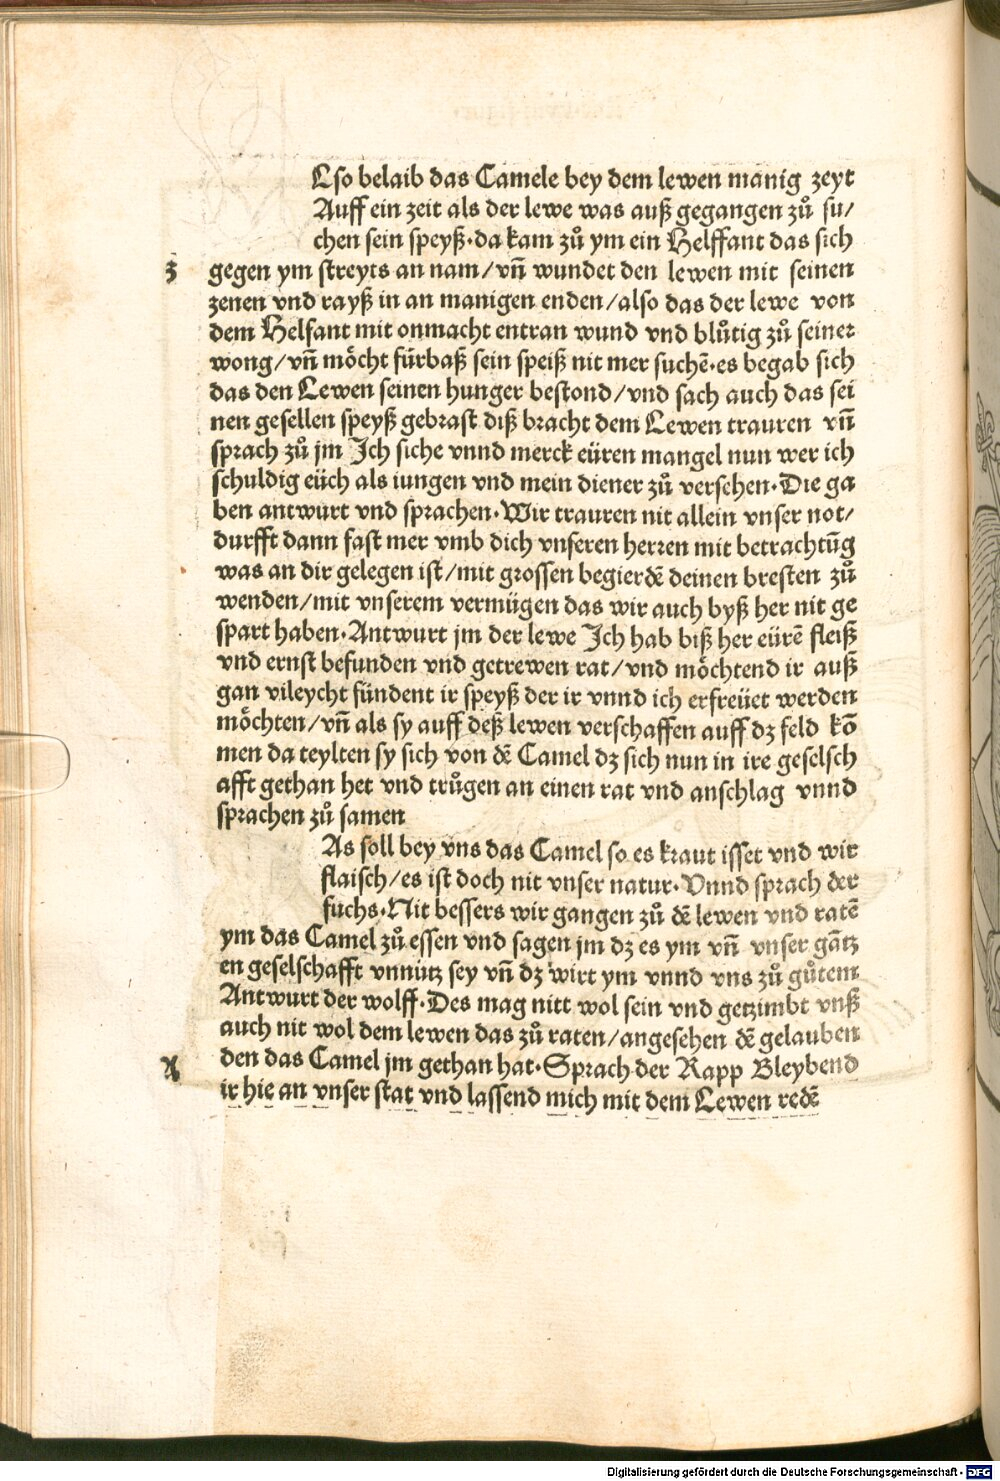 Lso belaib das Camele bey dem lewen manig zeyt
Auff ein zeit als der lewe was auß gegangen zů su/
chen sein speyß·da kam zů ym ein Helffant das sich
z gegen ym streyts an nam/vñ wundet den lewen mit seinen
zenen vnd rayß in an manigen enden/also das der lewe von
dem Helfant mit onmacht entran wund vnd blůtig zů seiner
wong/vñ möcht fürbaß sein speiß nit mer suchē·es begab sich
das den Lewen seinen hunger bestond/vnd sach auch das sei
nen gesellen speyß gebrast diß bracht dem Lewen trauren vñ
sprach zů jm Ich siche vnnd merck eüren mangel nun wer ich
schuldig eüch als iungen vnd mein diener zů versehen·Die ga
ben antwurt vnd sprachen·Wir trauren nit allein vnser not/
durfft dann fast mer vmb dich vnseren herren mit betrachtūg
was an dir gelegen ist/mit grossen begierdē deinen bresten zů
wenden/mit vnserem vermügen das wir auch byß her nit ge
spart haben·Antwurt jm der lewe Ich hab biß her eürē fleiß
vnd ernst befunden vnd getrewen rat/vnd möchtend ir auß
gan vileycht fündent ir speyß der ir vnnd ich erfreüet werden
möchten/vñ als sy auff deß lewen verschaffen auff dz feld kō
men da teylten sy sich von dē Camel dz sich nun in ire geselsch
afft gethan het vnd trůgen an einen rat vnd anschlag vnnd
sprachen zů samen
As soll bey vns das Camel so es kraut isset vnd wir
flaisch/es ist doch nit vnser natur·Vnnd sprach der
fuchs·Nit bessers wir gangen zů dē lewen vnd ratē
ym das Camel zů essen vnd sagen jm dz es ym vñ vnser gātz
en geselschafft vnnütz sey vñ dz wirt ym vnnd vns zů gůtem
Antwurt der wolff·Des mag nitt wol sein vnd getzimbt vnß
auch nit wol dem lewen das zů raten/angesehen dē gelauben
A den das Camel jm gethan hat·Sprach der Rapp Bleybend
ir hie an vnser stat vnd lassend mich mit dem Lewen redē
Digitalisierung gefördert durch die Deutsche Forschungsgemeinschaft - DFG